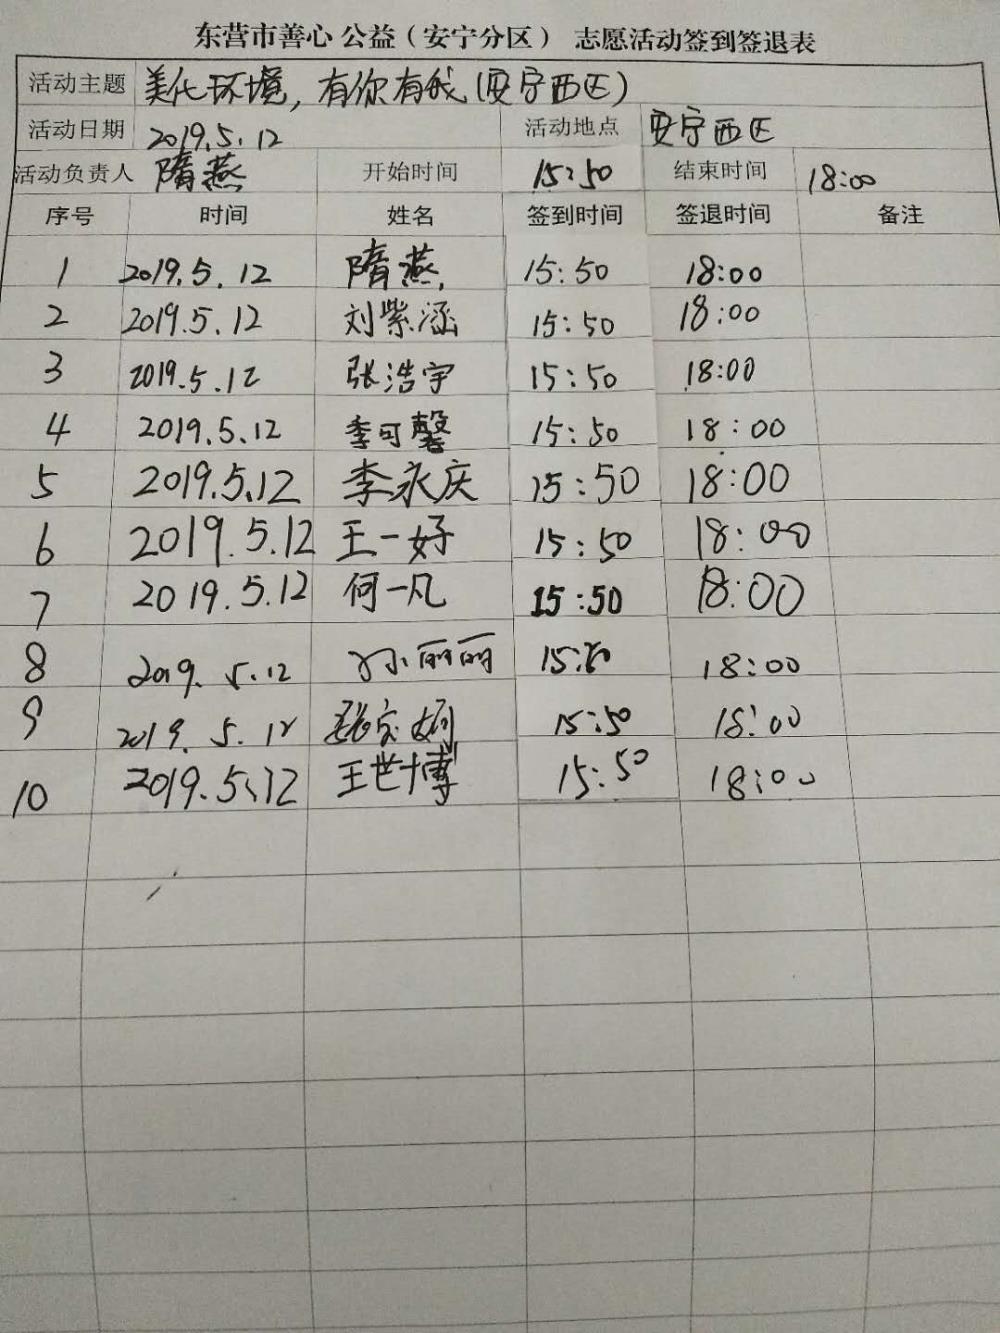 东营市善心 公益（安宁分区） 志愿活动签到签退表
活动主题 美化环境，有你有我（安宁西区）
活动日期 2019.5.12 活动地点 安宁西区
活动负责人 隋燕 开始时间 15:50 结束时间 18:00
序号 时间 姓名 签到时间 签退时间 备注
1 2019.5.12 隋燕 15:50 18:00
2 2019.5.12 刘紫涵 15:50 18:00
3 2019.5.12 张浩宇 15:50 18:00
4 2019.5.12 李可馨 15:50 18:00
5 2019.5.12 李永庆 15:50 18:00
6 2019.5.12 王一好 15:50 18:00
7 2019.5.12 何一凡 15:50 18:00
8 2019.5.12 孙丽丽 15:50 18:00
9 2019.5.12 15:50 18:00
10 2019.5.12 王世博 15:50 18:00